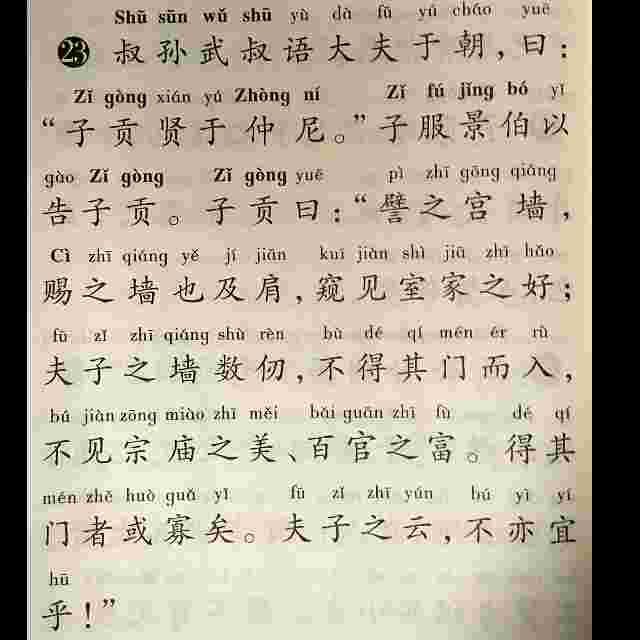 Shū sūn wǔ shū yù dà fū yú cháo yuē
23 叔孙武叔语大夫于朝,曰:
Zǐ gòng xián yú Zhòng ní Zǐ fú jǐng bó yǐ
“子贡贤于仲尼。”子服景伯以
gào Zǐ gòng Zǐ gòng yuē pì zhī gōng qiáng
告子贡。子贡曰:“譬之宫墙,
Cì zhī qiáng yě jí jiān kuī jiàn shì jiā zhī hǎo
赐之墙也及肩,窥见室家之好;
fū zǐ zhī qiáng shù rèn bù dé qí mén ér rù
夫子之墙数仞,不得其门而入,
bú jiàn zōng miào zhī měi bǎi guān zhī fù dé qí
不见宗庙之美、百官之富。得其
mén zhě huò guǎ yǐ fū zǐ zhī yún bú yì yí
门者或寡矣。夫子之云,不亦宜
hū
乎!”